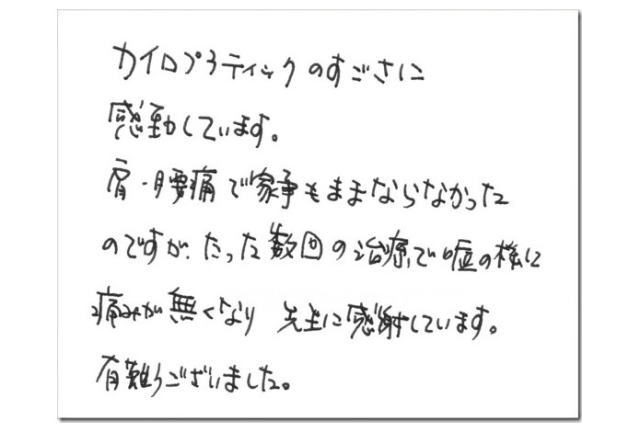 カイロプラティックのすごさに
感動しています。
肩・腰痛で家事もままならなかった
のですが、たった数回の治療で嘘の様に
痛みが無くなり 先生に感謝しています。
有難うございました。